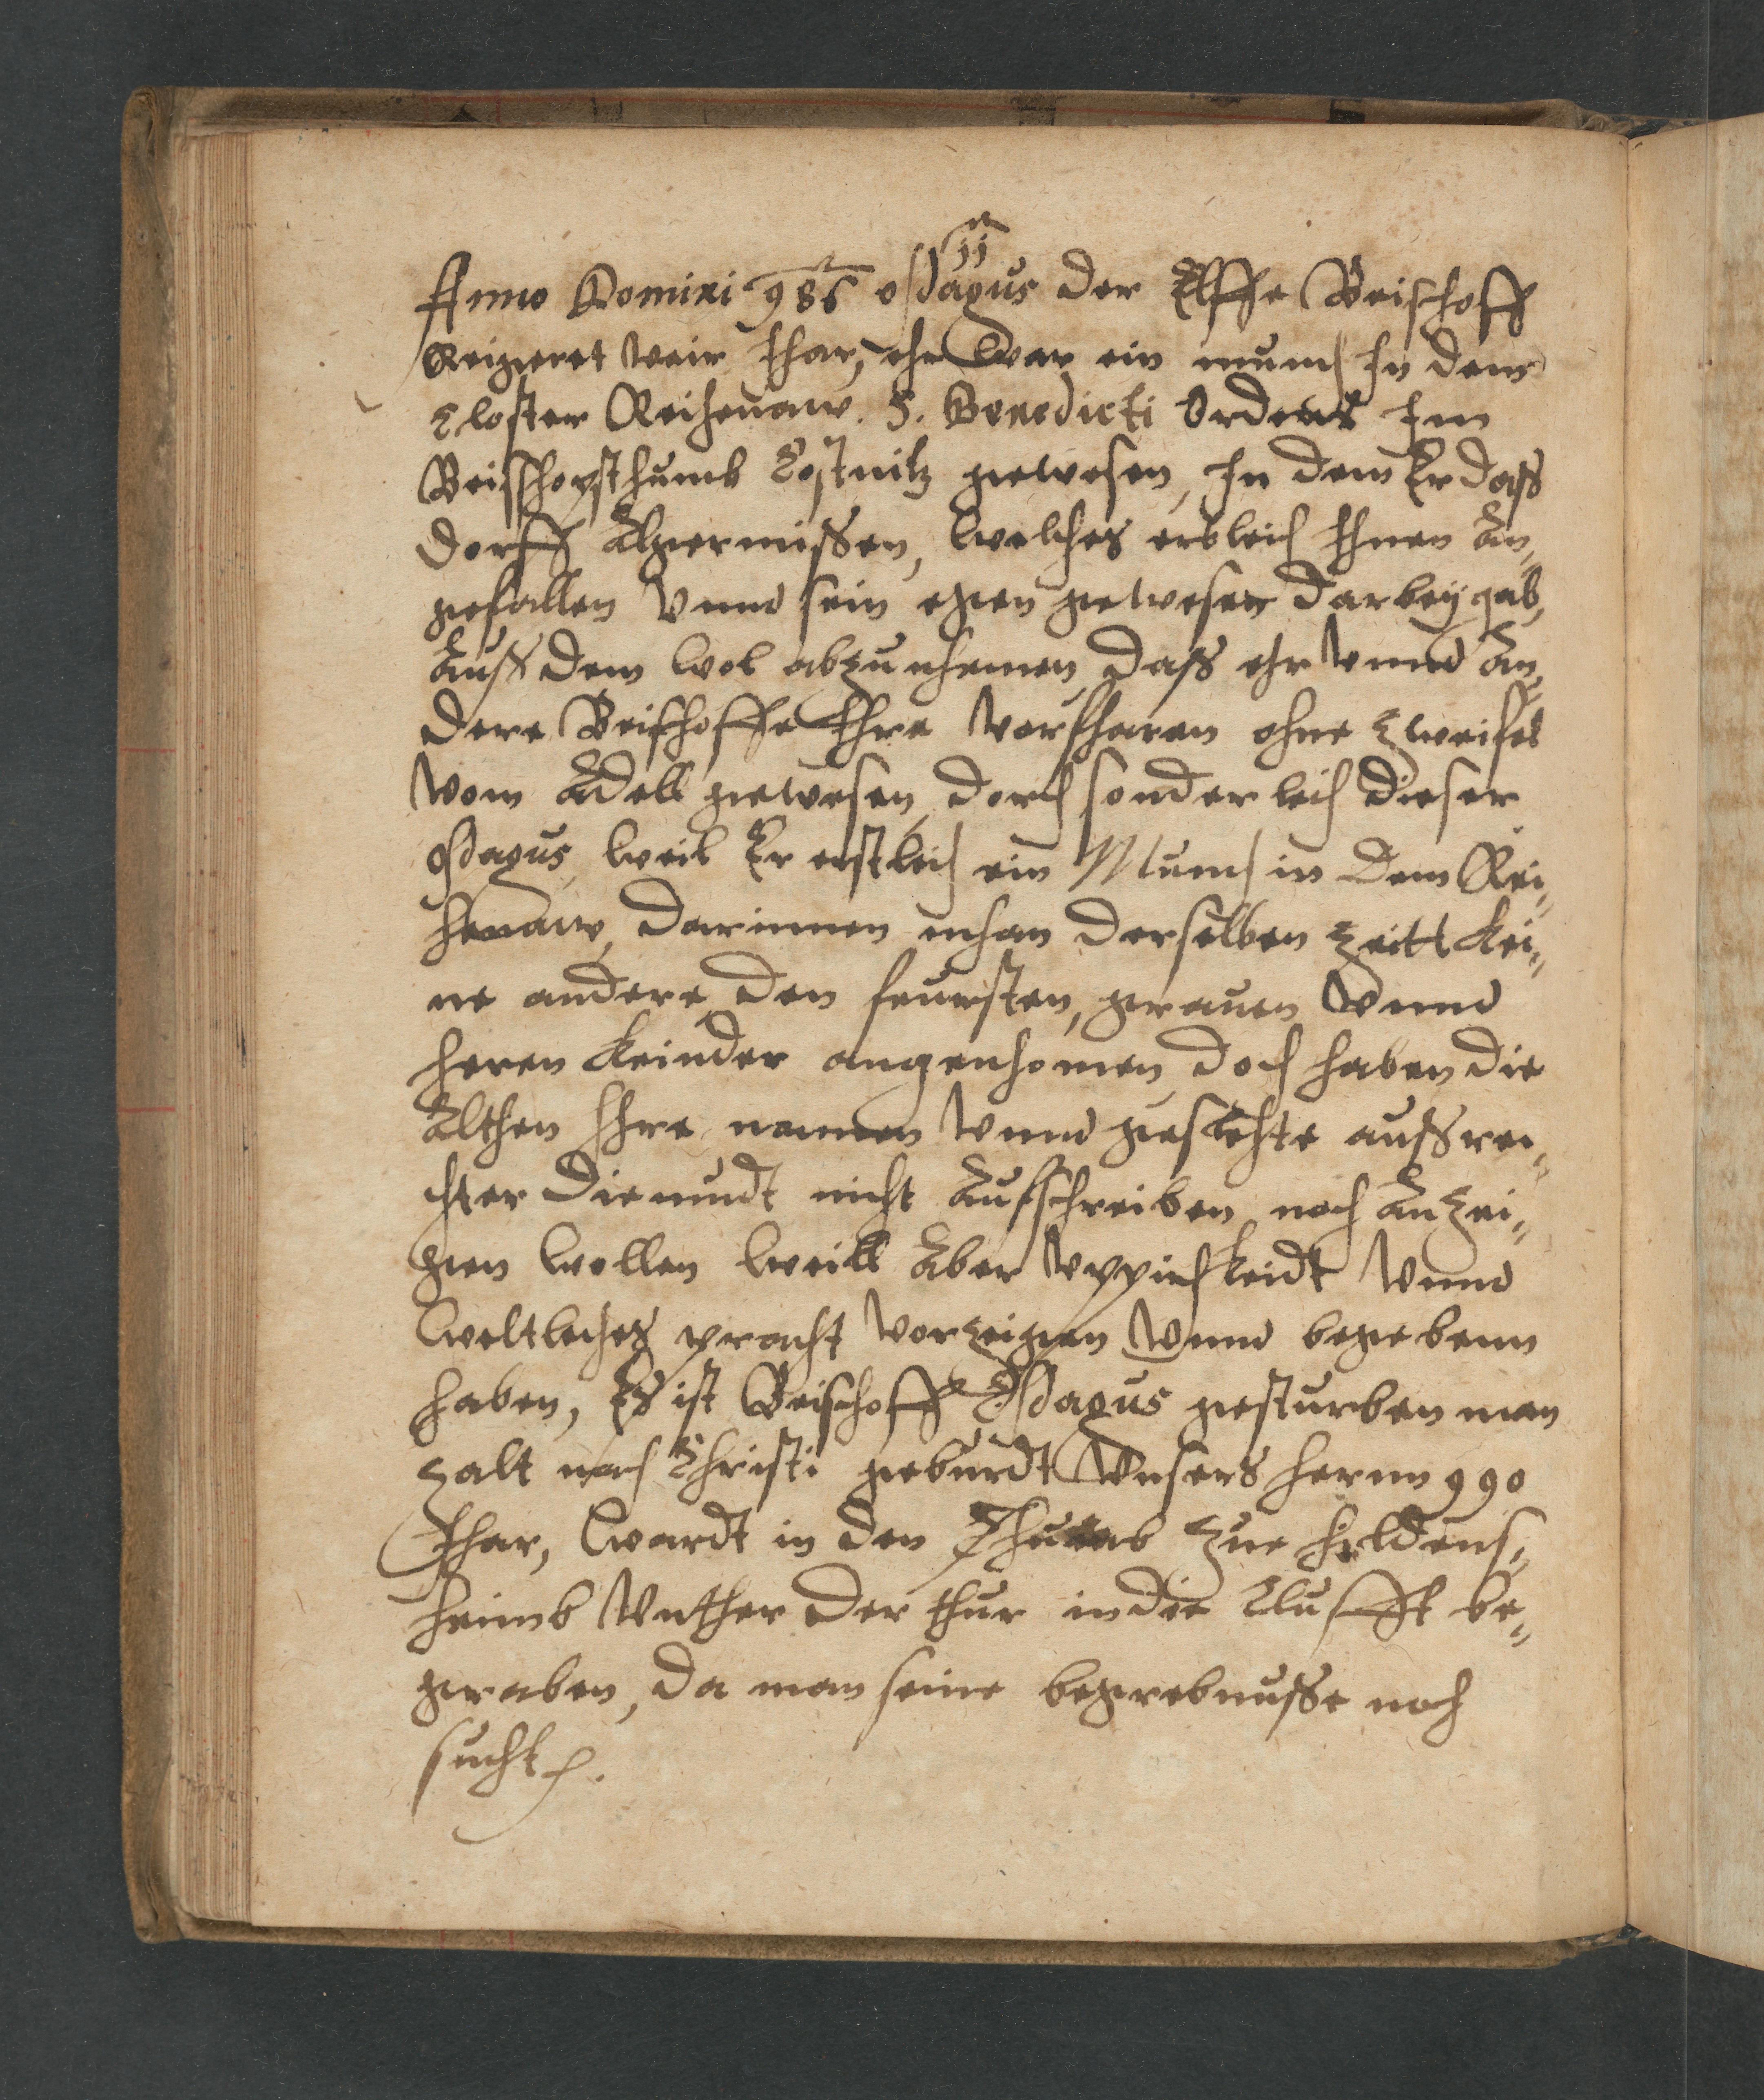 11
Anno Domini 986 osdagus der Elffe Beischoff
Reigeret veir Jhar, ehr war ein munch In dem
Closter Reichenaw. S. Benedicti Ordens Im
Beisschopsthumb Costnitz gewesen, In dem Er daß
dorff Algermissen, welches erbleich Ihnen An„
gefallen Vnnd sein egen gewesen darbey gab,
Auß dem wol abzunhemen, daß ehr Vnnd An„
dere Beischoffe Ihre Vorfharen ohne Zweifel
Vom Adell gewesen, doch sonderleich dieser
Osdagus, weil Er erstleich ein Munch in dem Rei„
chenaw, darinnen mhan derselben Zeitt kei„
ne andere, den feursten, grauen Vnnd
heren keinder angenhomen, doch haben die
Althen Ihre namen Vnnd geslechte auß rei„
chter diemudt nicht Aufschreiben noch Anzei„
gen wollen weill Aber Vppichkeidt Vnnd
weltleches pracht Vorzeigen Vnnd begebenn
haben, Es ist Beischoff Osdagus gesturben man
Zalt nach Christi geburdt Vnsers hernn 990
Jhar, wardt in den Thumb Zue Heldens„
heimb Vnther der thur in die Clufft be„
graben, da man seine begrebnusse noch
sucht.